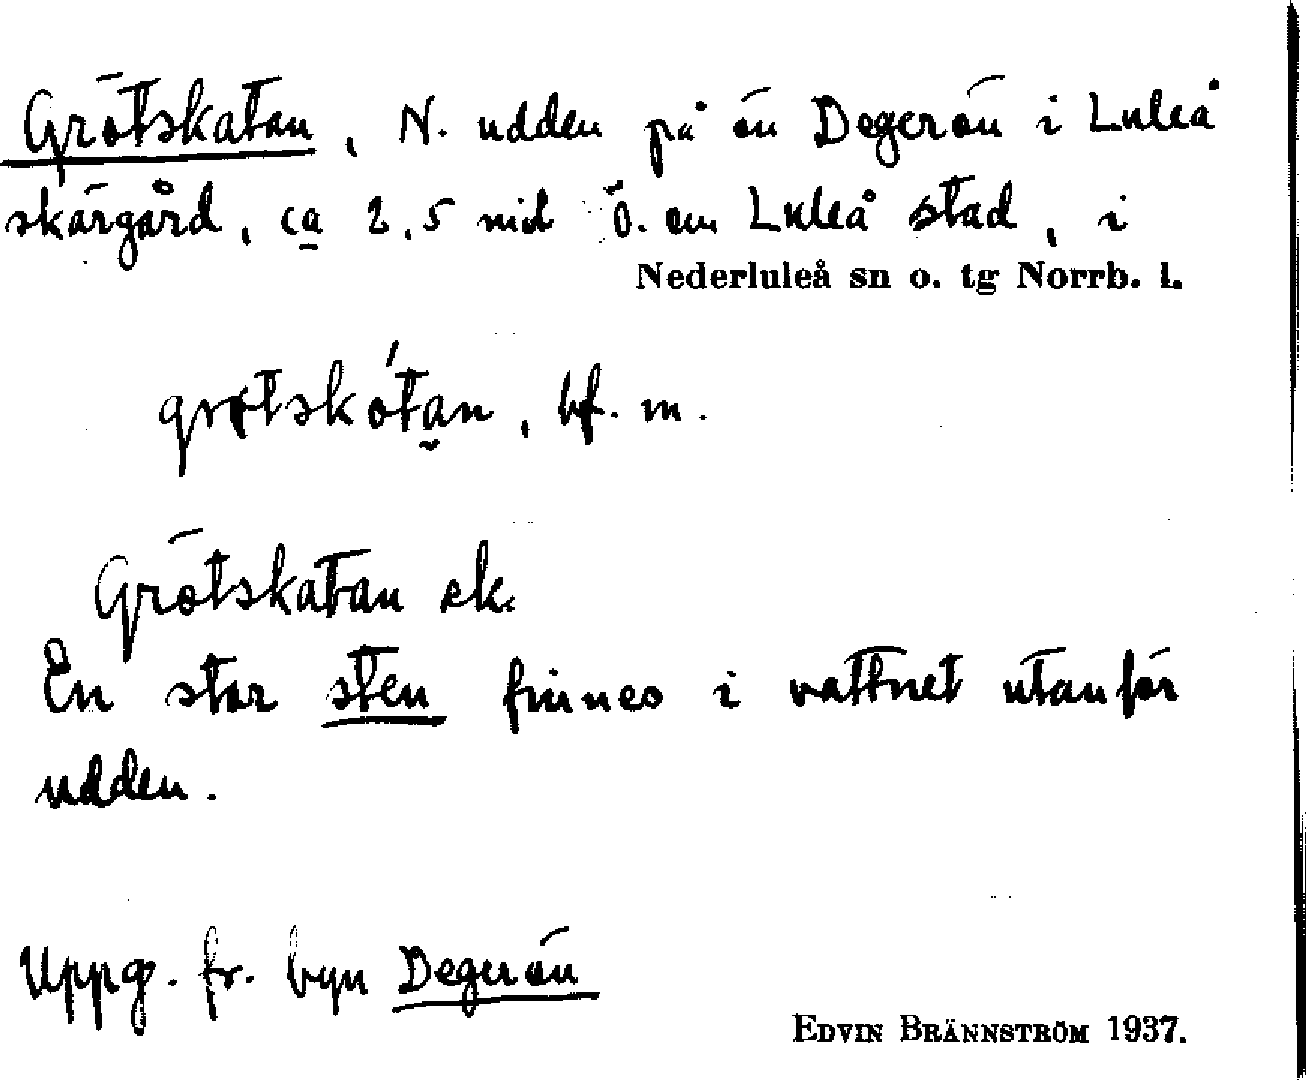 Grötskatan, N. udden på ön Degerön i Luleå
skärgård, ca 2,5 mil Ö. om Luleå stad, i
Nederluleå sn o. tg Norrb. l.
bf. m.
Grötskatan ek.
En stor sten finnes i vattnet utanför
udden.
Uppg. fr. byn Degerön
EDVIN BRÄNNSTRÖM 1937.